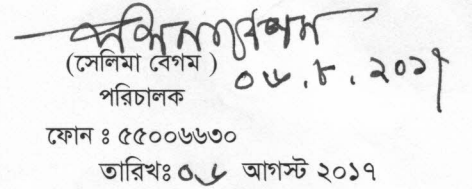 সেলিমা বেগম
(সেলিমা বেগম )
০৬.৮.২০১৭
পরিচালক
ফোন ঃ ৫৫০০৬৬৩০
তারিখঃ ০৬ আগস্ট ২০১৭